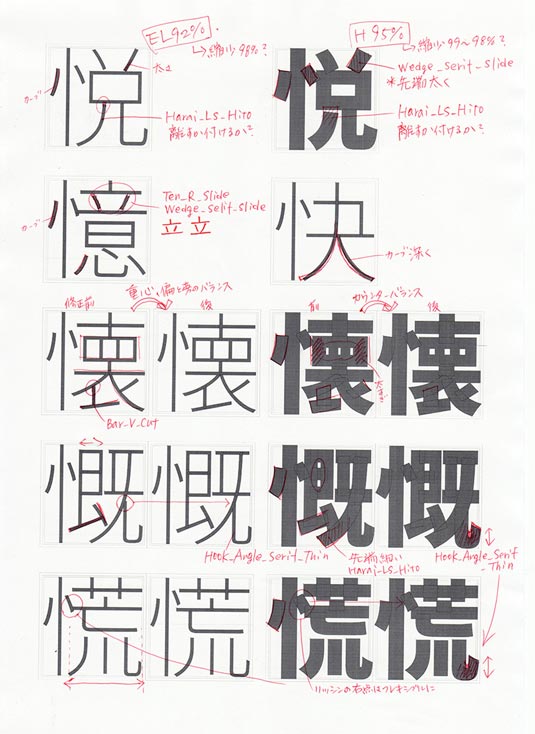 EL92%
↳縮小98%?
H 95%
↳縮小99~98%?
悦
カーブ
太さ
Harai_LS_Hito
離すか付けるか?
悦
Wedge_Serif_Slide
*先端太く
Harai_LS_Hito
離すか付けるか?
憶
カーブ
Ten_R_Slide
Wedge_Selif_Slide
立 立
快
カーブ深く
重心、偏と旁のバランス
修正前
後
カウンターバランス
前
後
懐
懐
Bar_V_Cut
懐
懐
太すぎ
慨
慨
Hook_Angle_Serif_Thin
慨
慨
先端細い
Harai_LS_Hito
Hook_Angle_Serif
_Thin
慌
慌
慌
慌
リッシンの右点はフレキシブルに